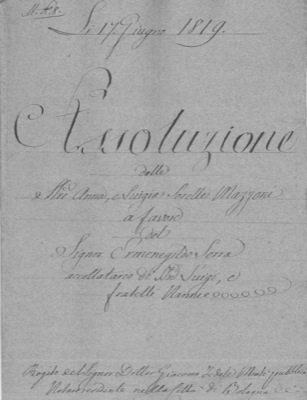 Li 17. Giugno 1819.
Assoluzione
delle
Anna, e Luigia Sorelle Mazzoni
a favore
del
Signor Ermenegildo Serra
accollatario di Luigi, e
fratelli Nannie
Rogito del Signor Dottor Giacomo pubblico
Notaro residente nella Città di Bologna